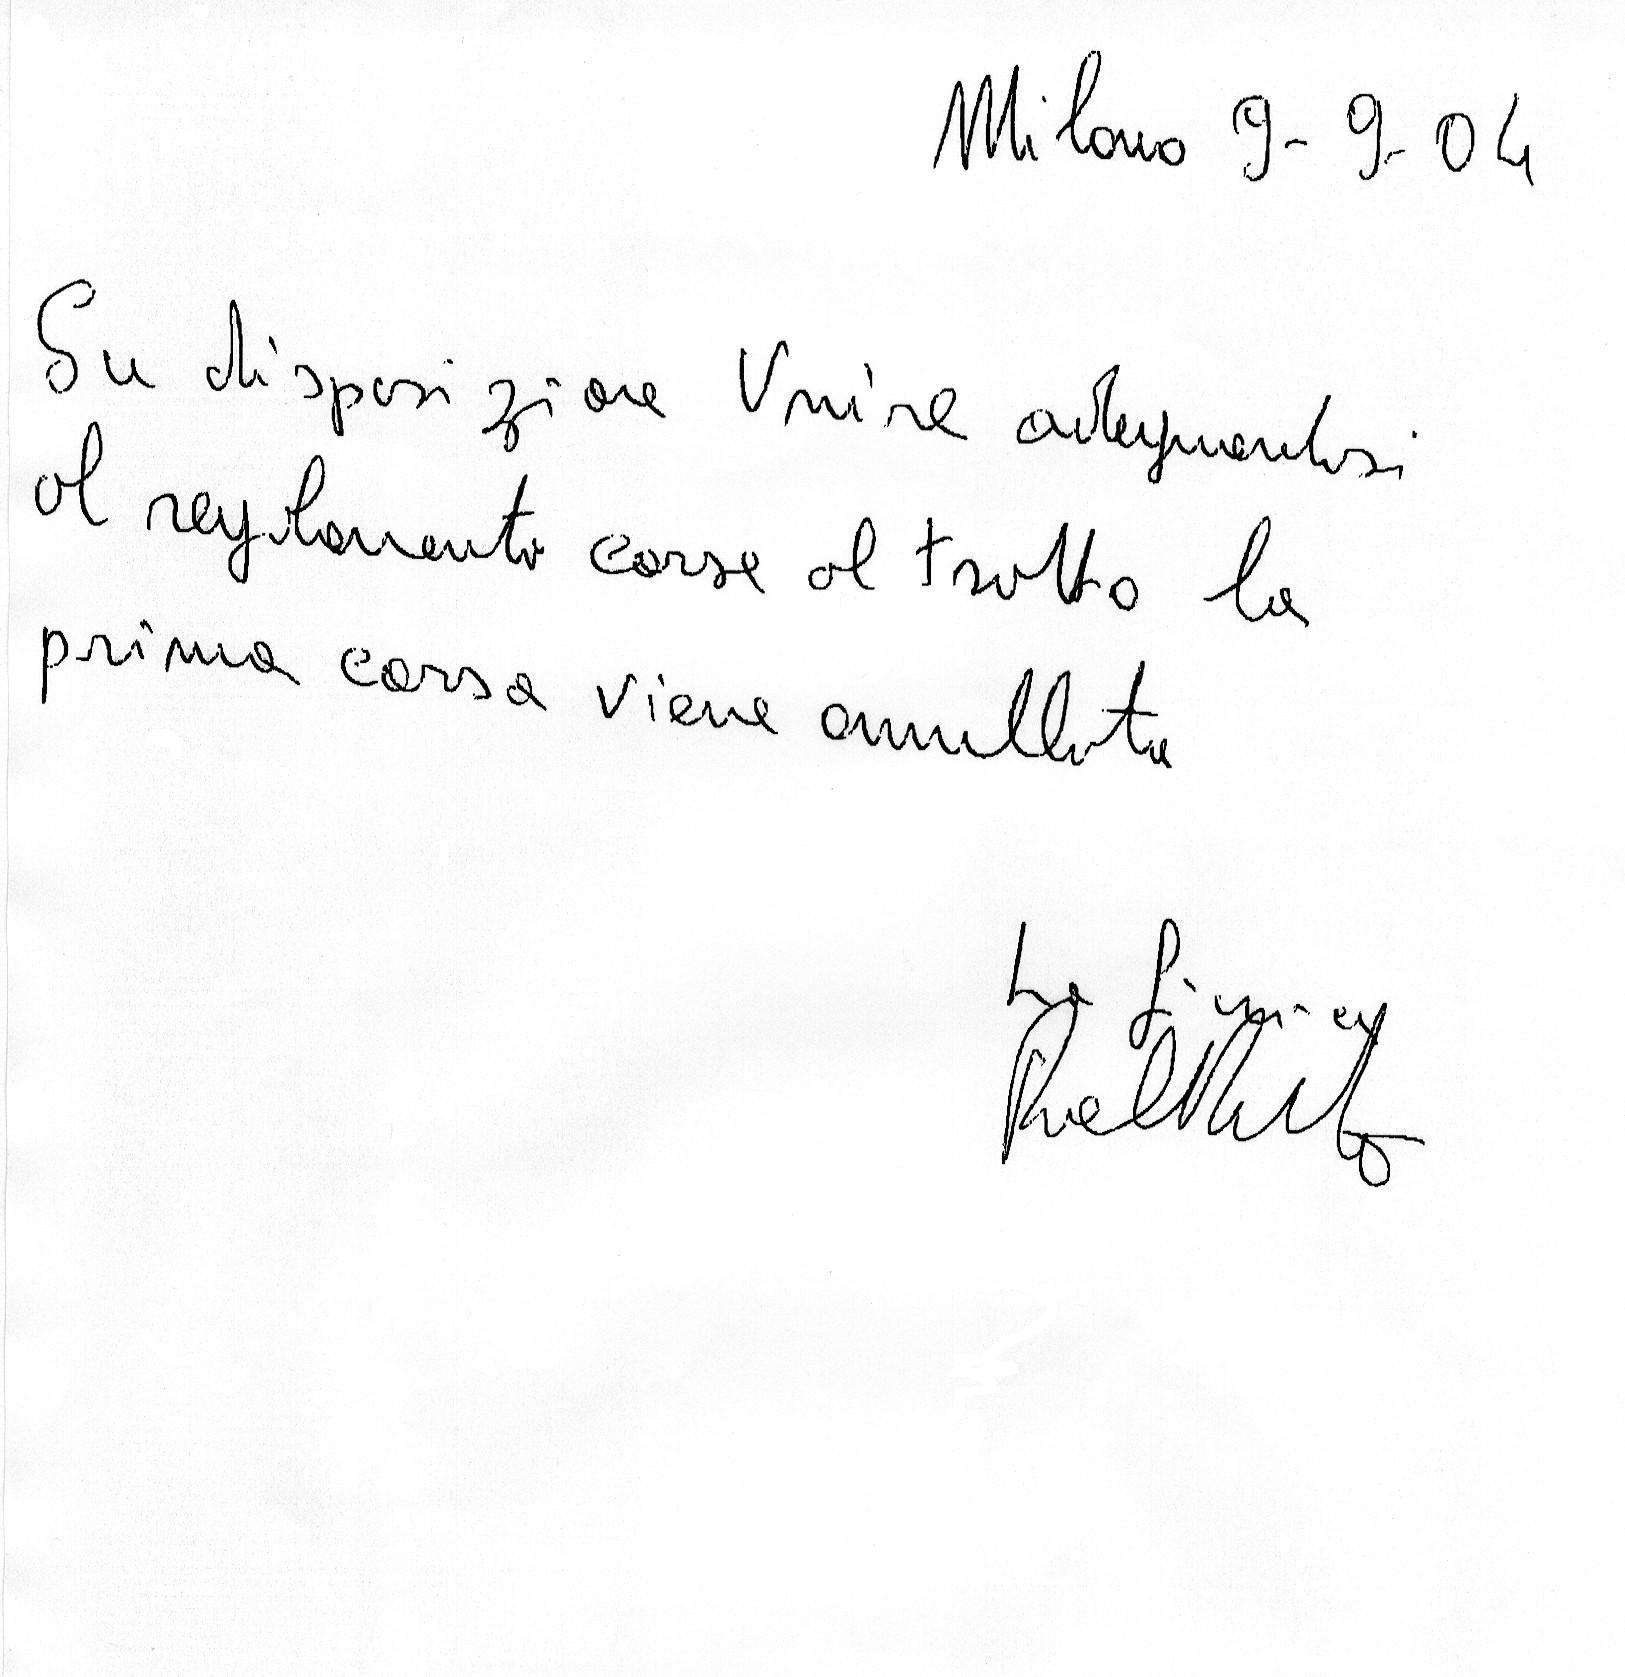 Milano 9-9-04
Su disposizione Unire adeguandosi
al regolamento corse al trotto la
prima corsa viene annullata
La giuria